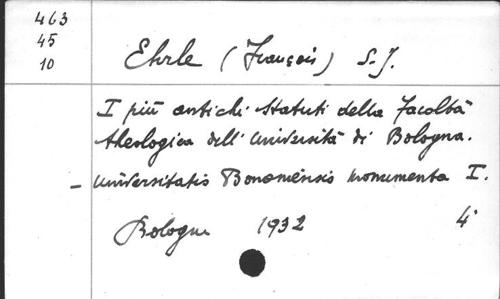 463
45
10
Ehrle (François) S.J.
I più antichi statuti della Facoltà
theologica dell' Università di Bologna.
- Universitatis Bononiensis monumenta I.
Bologne 1932 4°